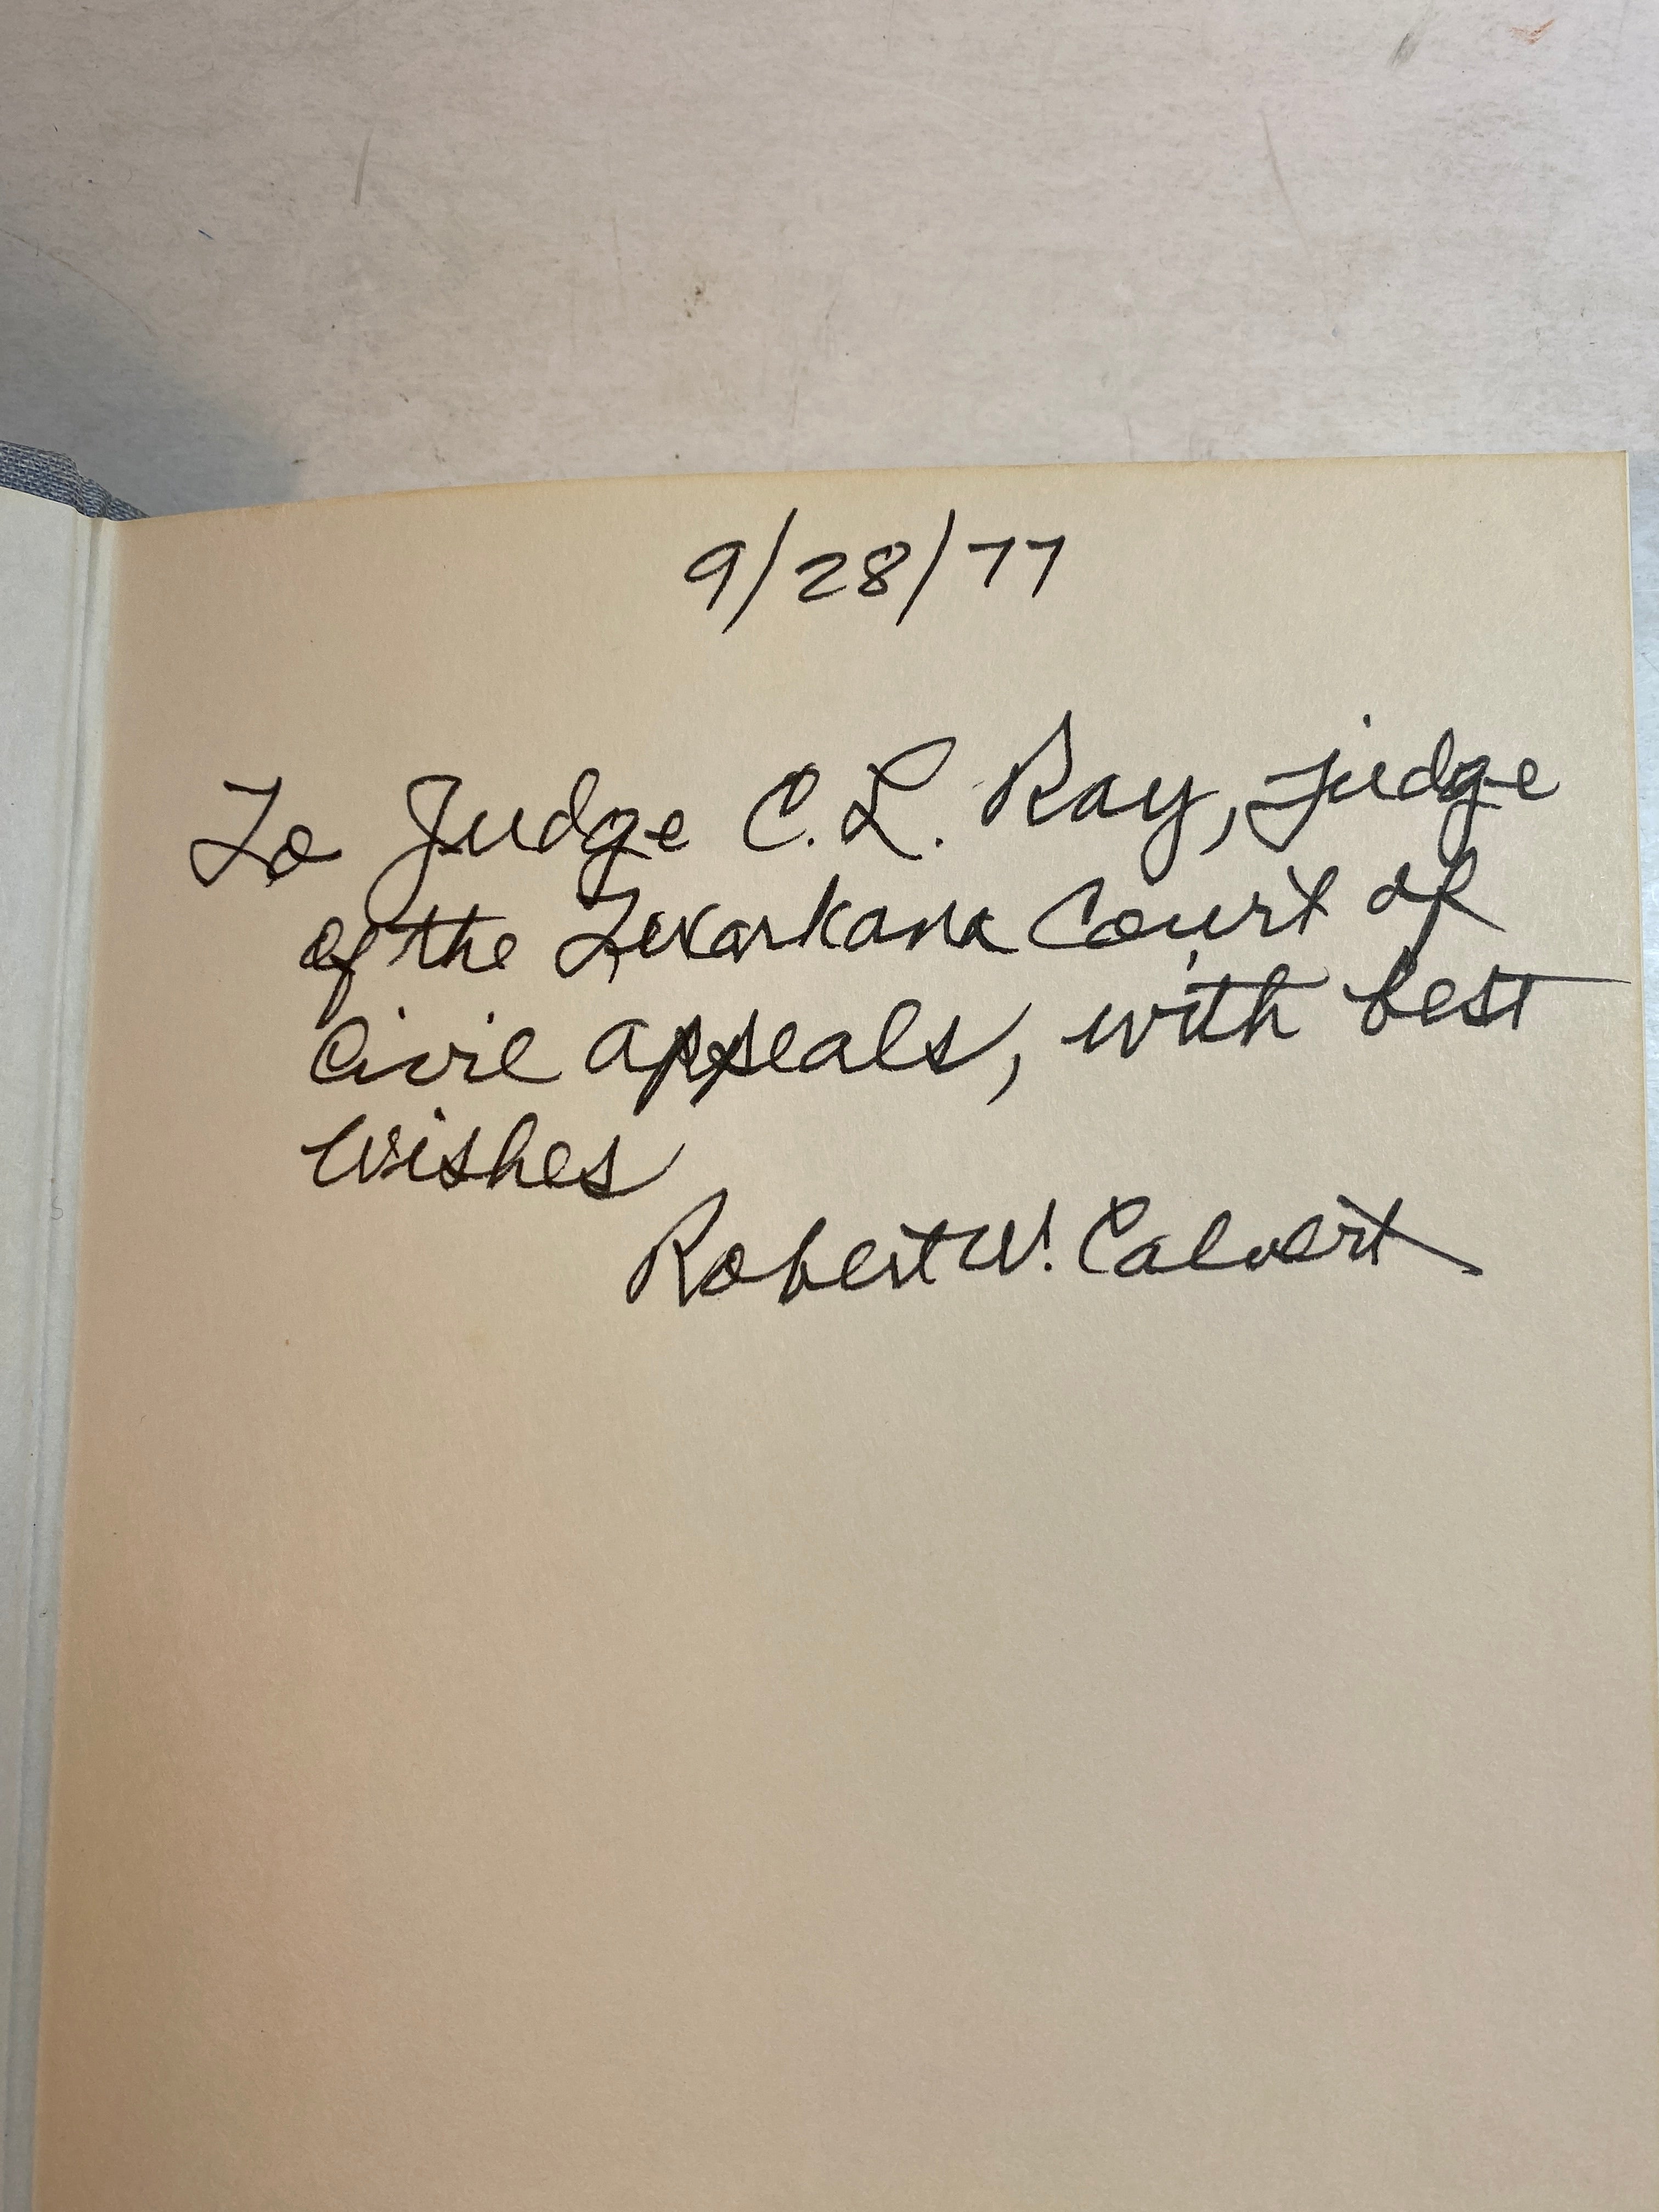 9/28/77
To Judge C. L. Ray, judge
of the Texarkana Court of
Civil Appeals, with best
wishes
Robert W. Calvert